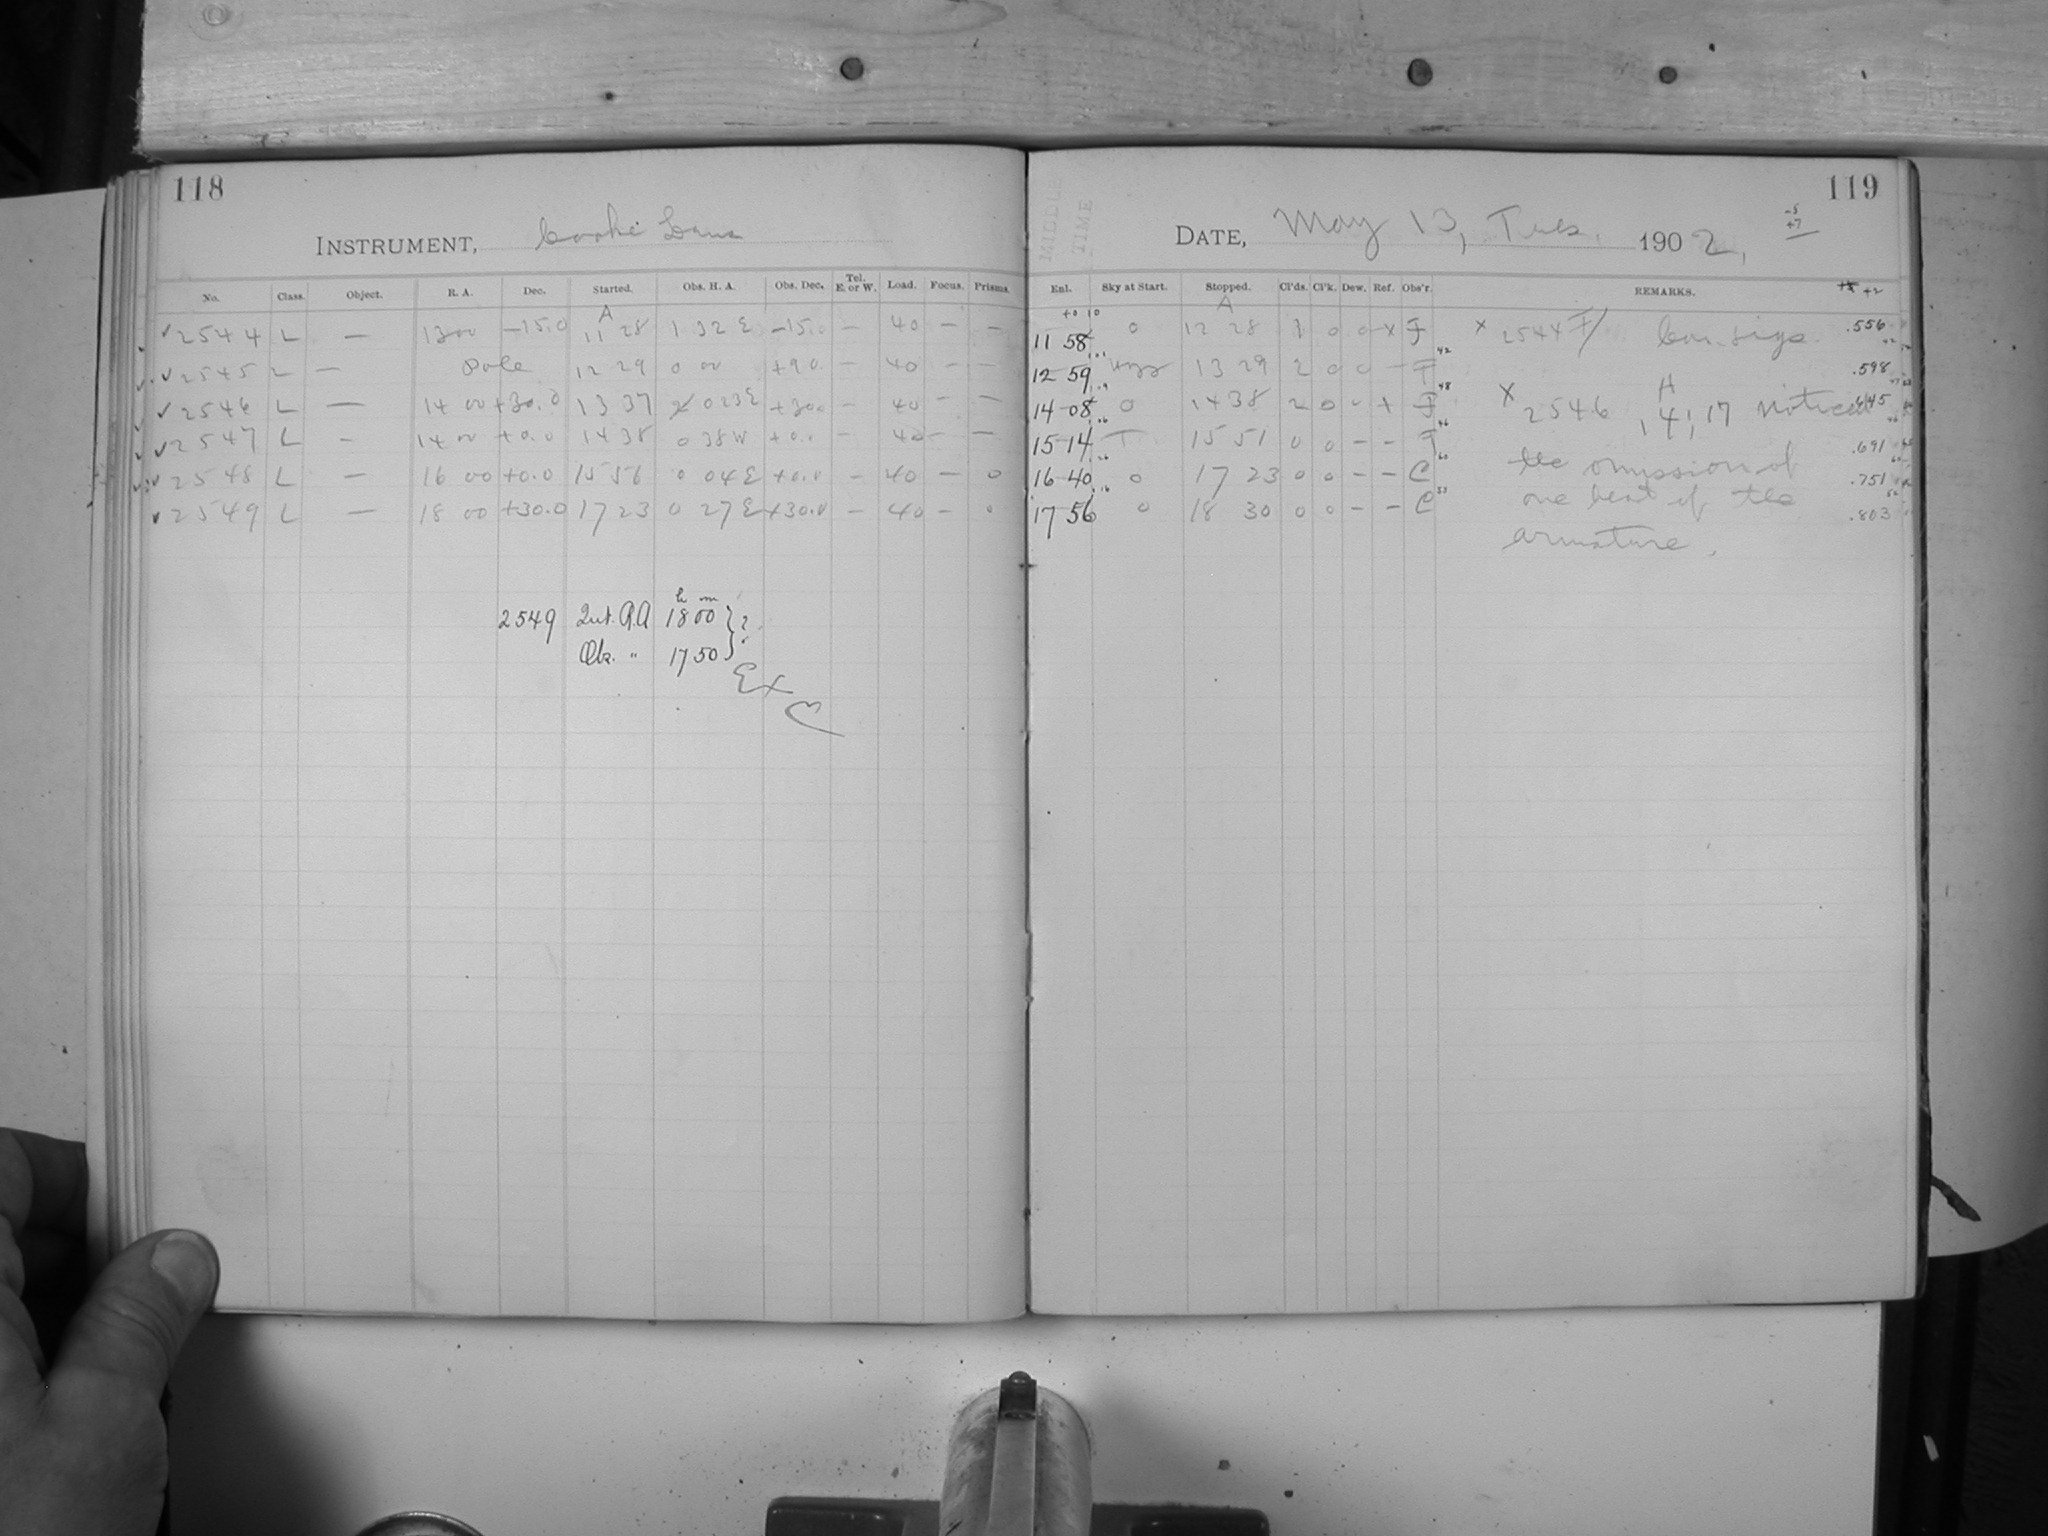 118
INSTRUMENT, Cooke Lens
No. Class. Object. R. A. Dec. Started. Obs. H. A. Obs. Dec. Tel. E. or W. Load. Focus. Prisms.
A
✓ 2544 L — 13 00 −15.0 11 28 1 32 E −15.0 — 40 — —
✓ 2545 L — Pole 12 29 0 00 +90. — 40 — —
✓ 2546 L — 14 00 +30.0 13 37 0 23 E +30.0 — 40 — —
✓ 2547 L — 14 00 +0.0 14 38 0 38 W +0.0 — 40 — —
✓ 2548 L — 16 00 +0.0 15 56 0 04 E +0.0 — 40 — 0
✓ 2549 L — 18 00 +30.0 17 23 0 27 E +30.0 — 40 — 0
h m
2549 Int. R.A 18 00 } ?
Obs. " 17 50
Ex
C
119
MIDDLE
TIME
DATE, May 13, Tues. 1902,
−5
+7
Enl. Sky at Start. Stopped. Cl'ds. Cl'k. Dew. Ref. Obs'r. REMARKS. +2
+0 10 A
11 58 0 12 28 1 0 0 x F x 2544 F/ .556
12 59 Hazy 13 29 2 0 0 — F .598
14 08 0 14 38 2 0 — x F x 2546, H 14, 17 noticed .645
15 14 15 51 0 0 — — F .691
16 40 0 17 23 0 0 — — C the omission of .751
17 56 0 18 30 0 0 — — C one beat of the .803
armature.